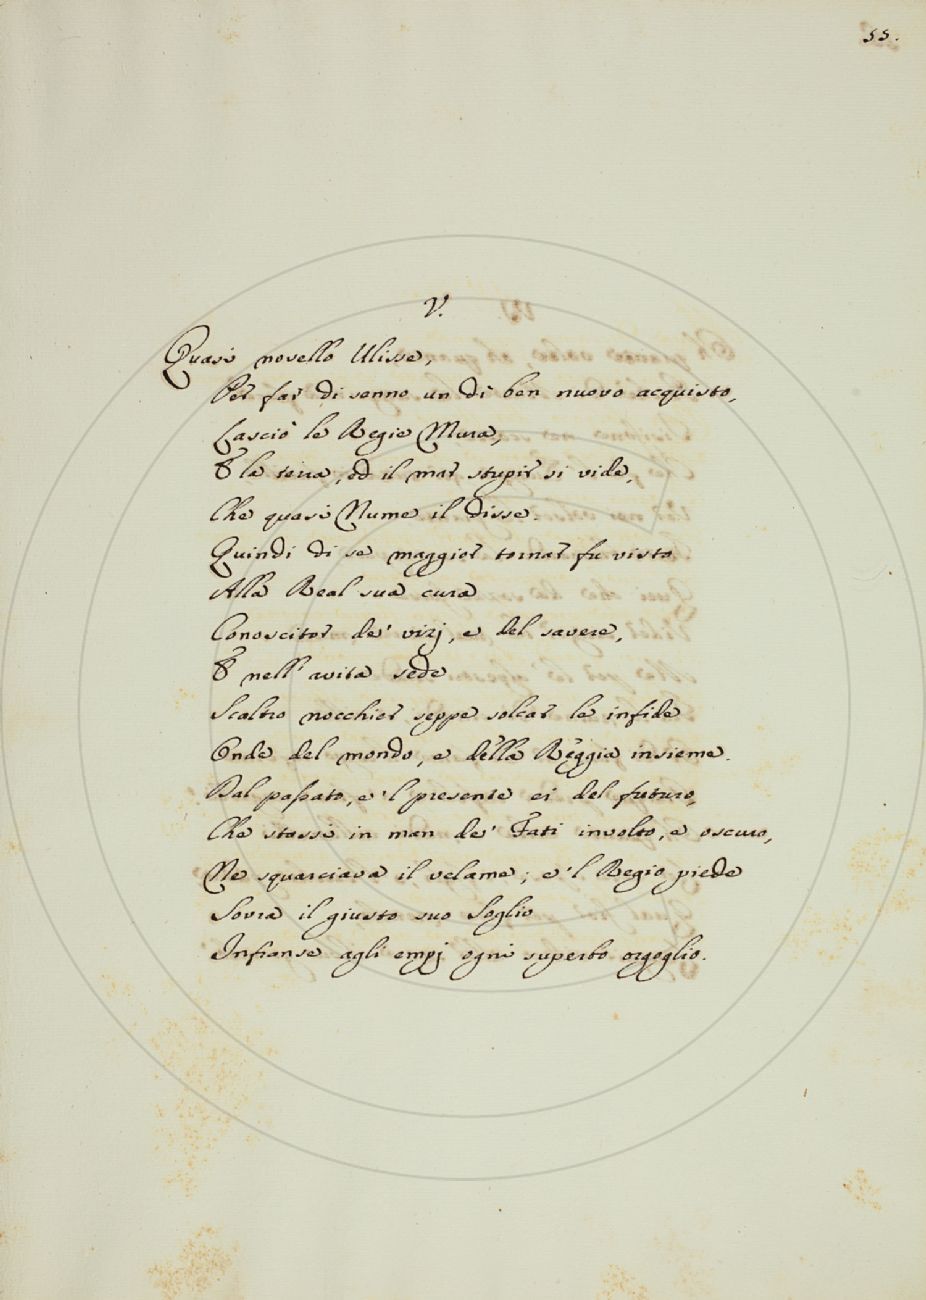 55.
V.
Quasi novello Ulisse,
Per far di senno un dì ben nuovo acquisto,
Lasciò le Regie Mura,
E la terra, ed il mar stupir si vide,
Che quasi Nume il disse.
Quindi di se maggior tornar fu visto
Alla Real sua cura
Conoscitor de' vizj, e del savere,
E nell' avita sede
Scaltro nocchier seppe solcar le infide
Onde del mondo, e della Reggia insieme.
Dal passato, e 'l presente ei del futuro,
Che stassi in man de' Fati involto, e oscuro,
Ne squarciava il velame; e 'l Regio piede
Sovra il giusto suo Soglio
Infranse agli empj ogni superbo orgoglio.